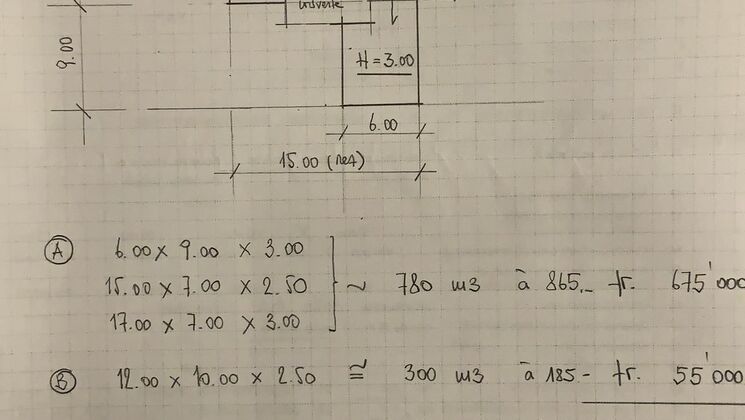 9.00
H = 3.00
6.00
15.00 (
Ⓐ 6.00 x 9.00 x 3.00
15.00 x 7.00 x 2.50 } ~ 780 m3 à 865.- fr. 675'000
17.00 x 7.00 x 3.00
Ⓑ 12.00 x 10.00 x 2.50 ≅ 300 m3 à 185.- fr. 55'000